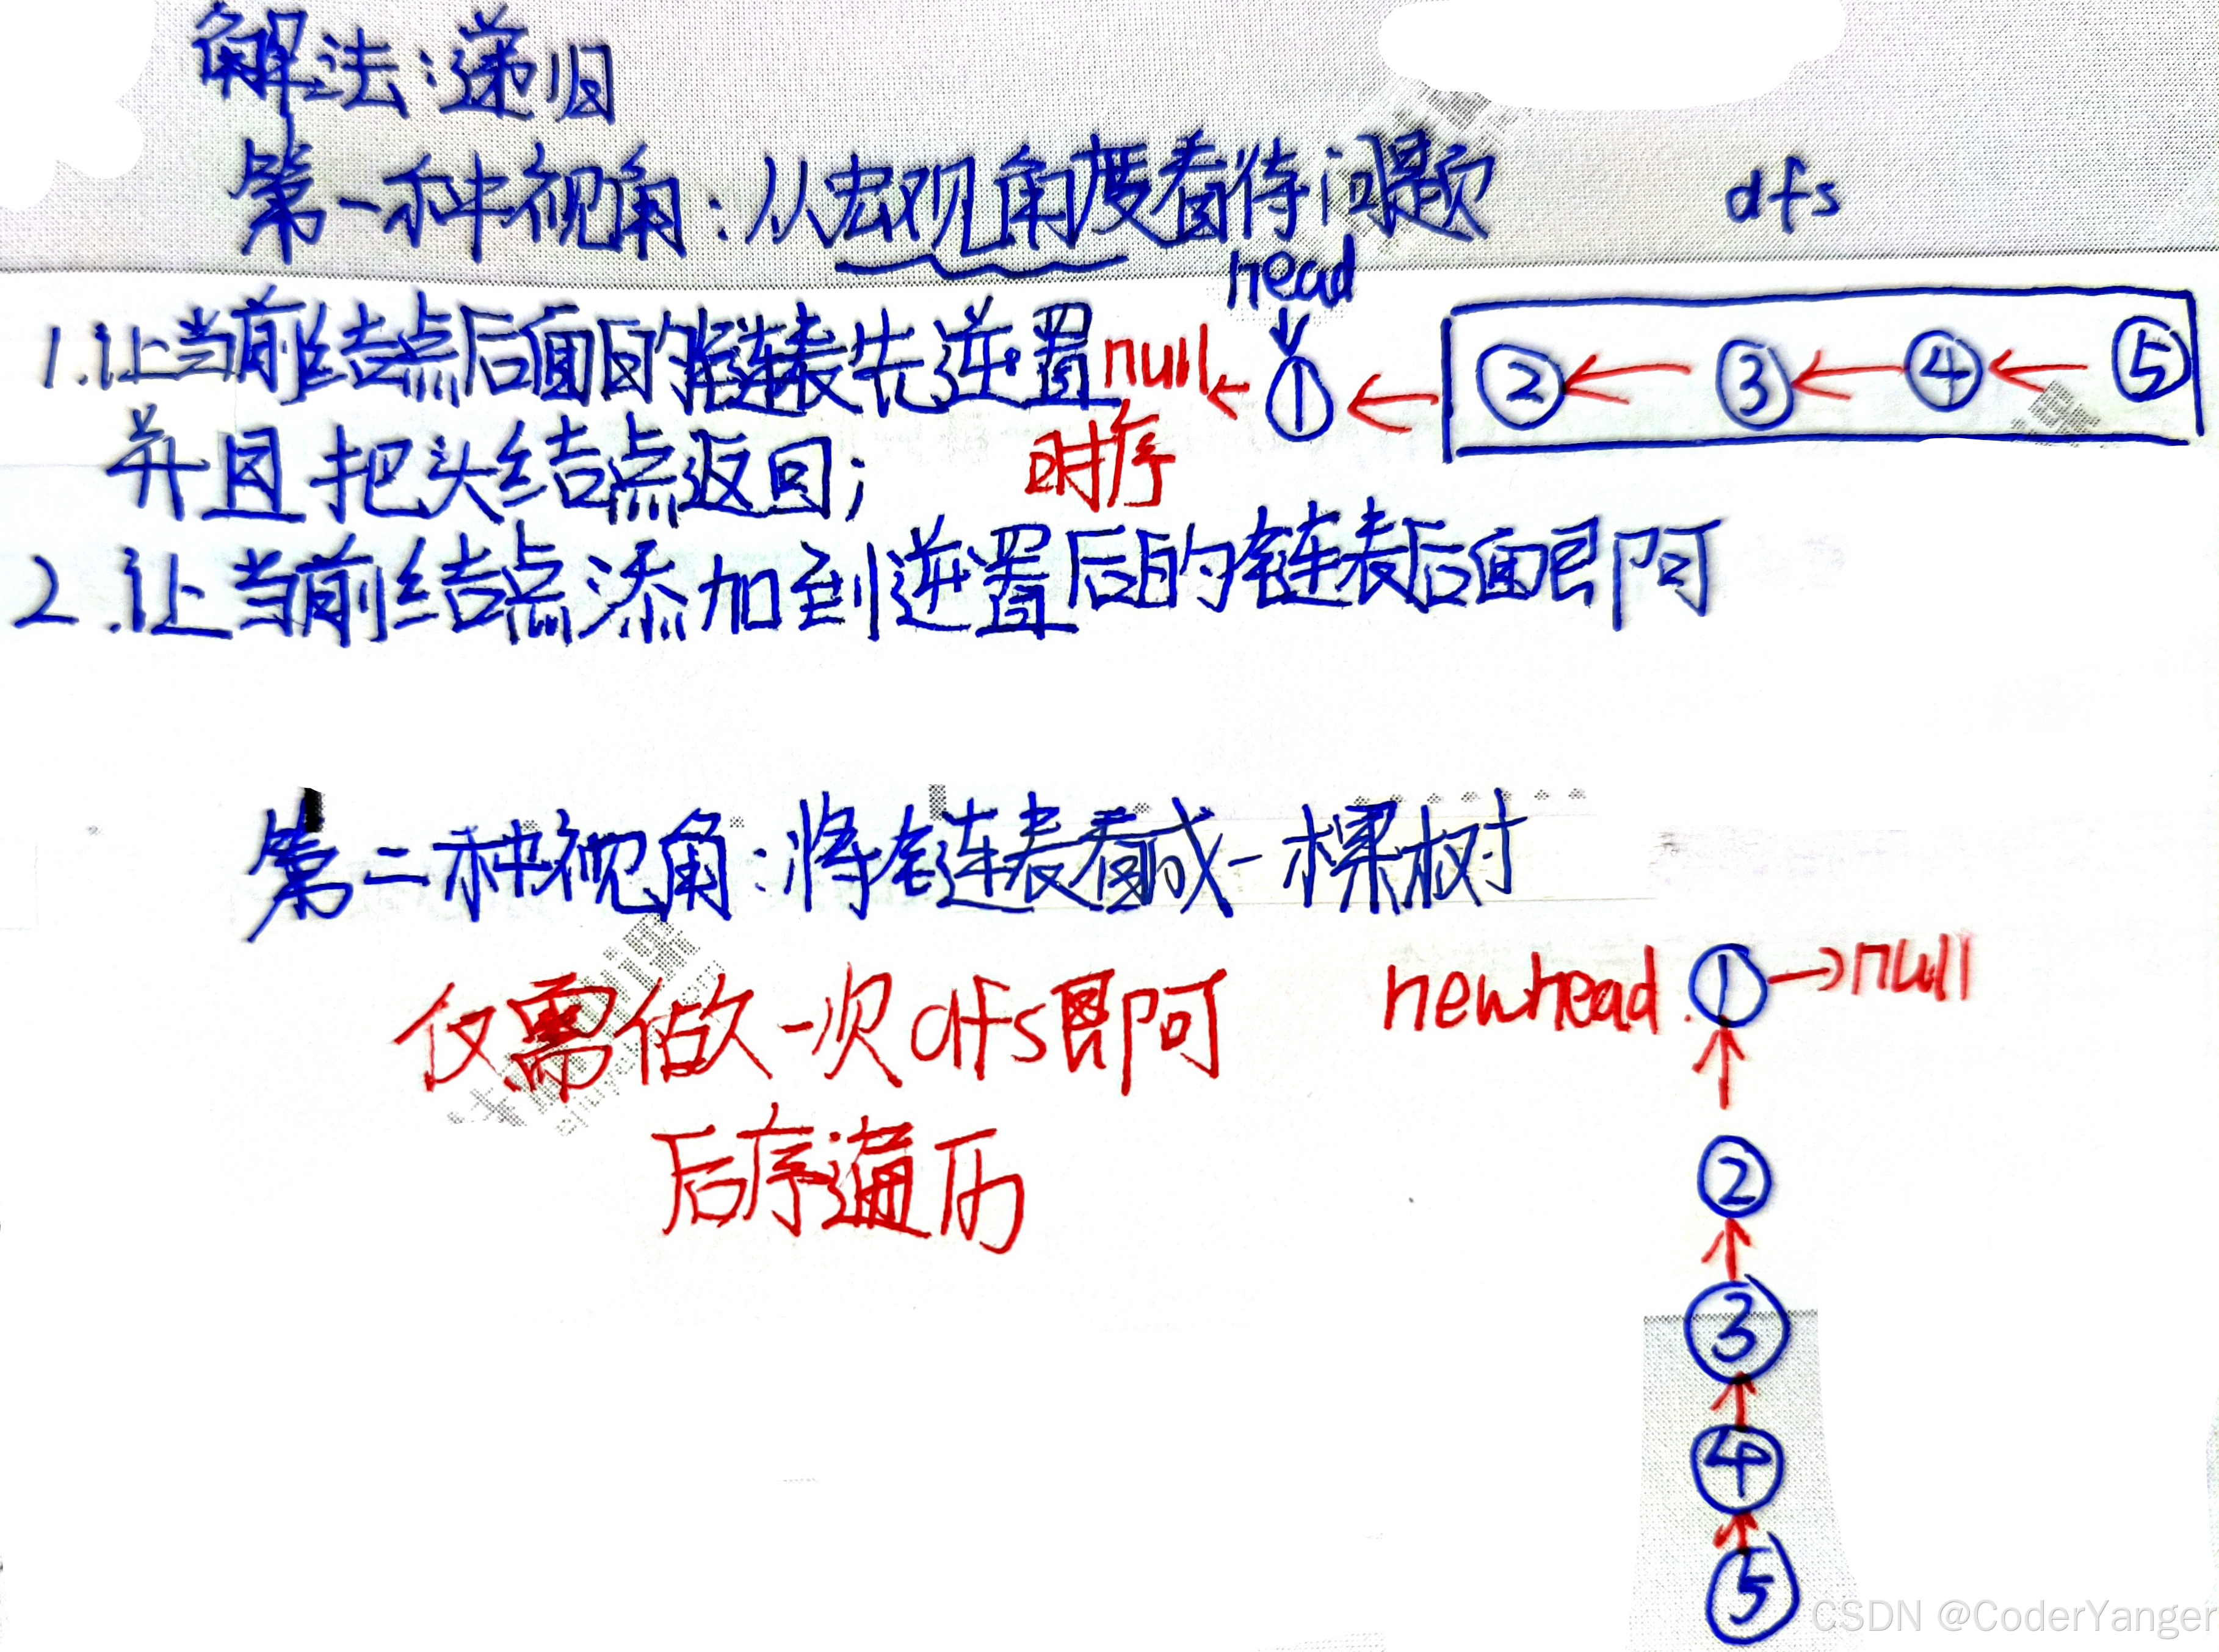 解法:递归
第一种视角:从宏观角度看待问题 dfs
head
1.让当前结点后面的链表先逆置 null ① ② ③ ④ ⑤
并且把头结点返回; 时序
2.让当前结点添加到逆置后的链表后面即可
第二种视角:将链表看成一棵树
仅需做一次dfs即可
newhead. ① null
后序遍历
②
③
④
⑤
CSDN @CoderYanger